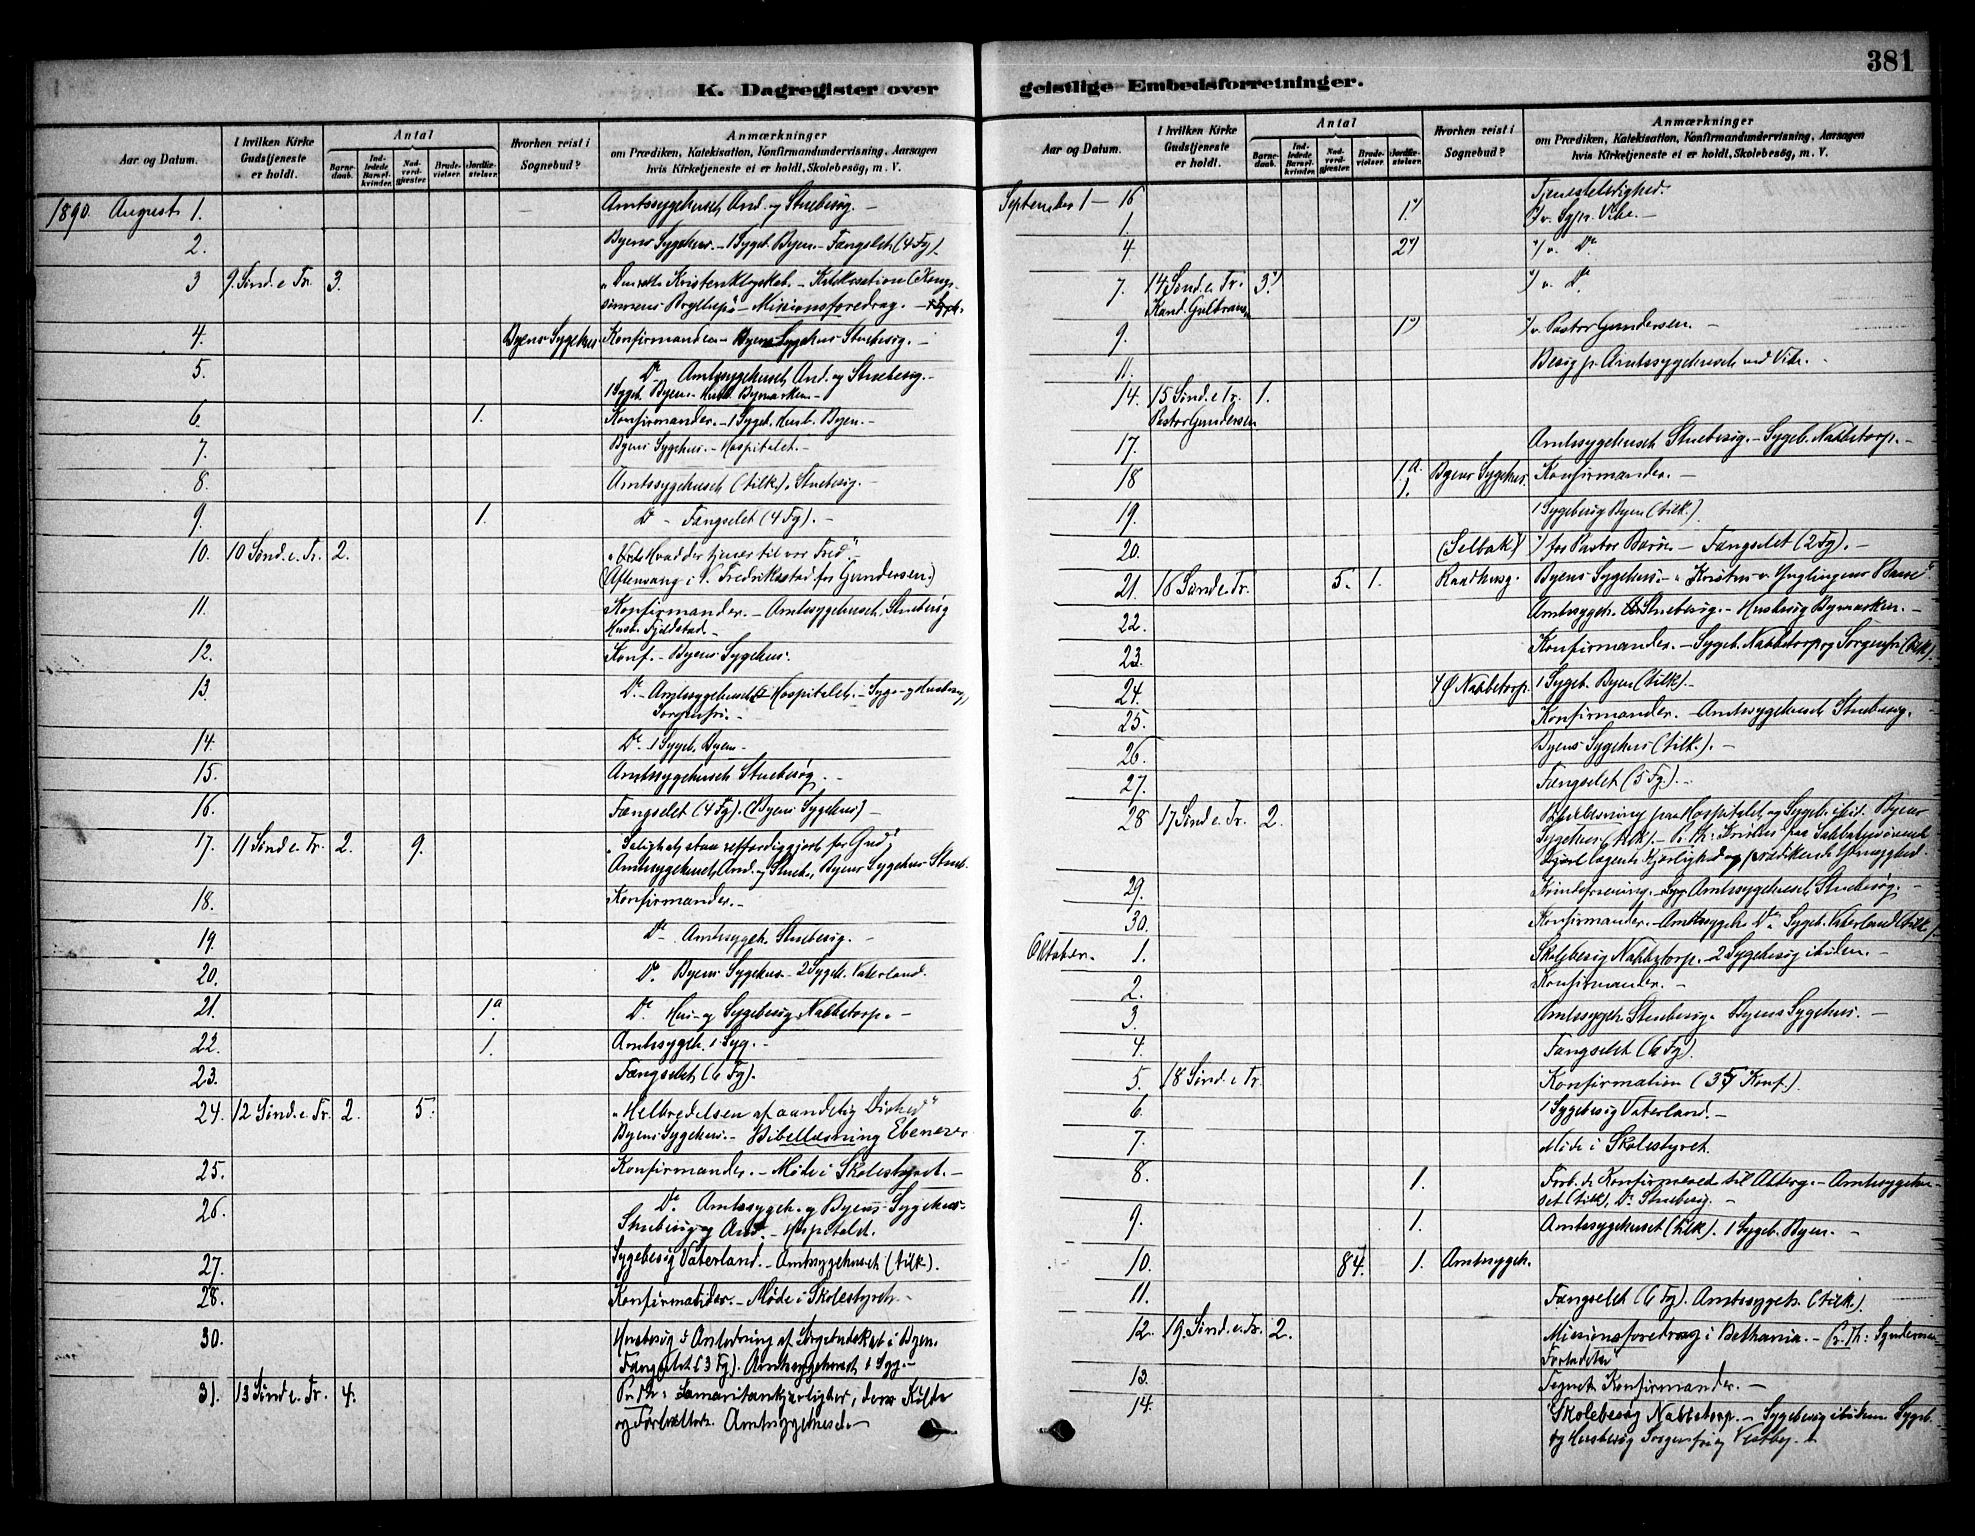 381
K. Dagregister over
geistlige Embedsforretninger.
Aar og Datum.
I hvilken Kirke Gudstjeneste er holdt.
Antal
Barne-daab.
Ind-ledede Barsel-kvinder.
Nad-verd-gjester.
Brude-vielser.
Jordfæ-stelser.
Hvorhen reist i Sognebud?
Anmærkninger
om Prædiken, Katekisation, Konfirmandundervisning, Aarsagen
hvis Kirketjeneste ei er holdt, Skolebesøg, m. V.
1890 August 1. Amtssygehuset And. og Stuebesøg. –
2. Byens Sygehus. – 1 Sygeb. Byen – Fængslet (4 Fg).
3 9 Sønd. e. Tr. 3. Kristen – Katekisation
Bryllup" – Missionsforedrag. –
4. Byens Sygehus Konfirmander – Byens Sygehus Stuebesøg. –
5. Do Amtssygehuset And. og Stuebesøg. –
1 Sygeb. Byen – Husb. Bymarken –
6. 1. Konfirmander. – 1 Sygeb. Husb. Byen. –
7. Byens Sygehus. – Hospitalet. –
8. Amtssygehuset (tilk.), Stuebesøg. –
9. 1. Do – Fængslet (4 Fg). –
10. 10 Sønd. e. Tr. 2. Hvad der tjener til vor Fred". –
(Aftensang i V. Fredriksstad for Gundersen.)
11. Konfirmander. – Amtssygehuset. Stuebesøg
Husb. Fjeldstad –
12. Konf. – Byens Sygehus.
13 Do – Amtssygehuset Hospitalet. – Syge- og Husbesøg
Sorgenfri. –
14. Do 1 Sygeb. Byen –
15. Amtssygehuset Stuebesøg. –
16 Fængslet (4 Fg). (Byens Sygehus) –
17. 11 Sønd. e. Tr. 2. 9. "Salighed staa retfærdiggjort for Gud"
Amtssygehuset And. og Stueb., Byens Sygehus Stueb.
18. Konfirmander. –
19. Do – Amtssygeh. Stuebesøg. –
20. Do Byens Sygehus – 2 Sygeb. Vaterland.
21. 1a Do Hus- og Sygebesøg Nabbetorp. –
22. 1. Amtssygeh. 1 Syg. –
23. Fængslet (6 Fg).
24. 12 Sønd. e. Tr. 2. 5. "Helbredelsen af aandelig Døvhed"
Byens Sygehus. – Bibellæsning Ebenezer
25. Konfirmander. – Møde i Skolestyret. –
26. Do Amtssygeh. og Byens Sygehus
Stuebesøg og And. – Hospitalet.
27. Sygebesøg Vaterland. – Amtssygehuset (tilk).
28. Konfirmander. – Møde i Skolestyret. –
30. Husbesøg i Anledning af i Byen.
Fængslet (3 Fg). Amtssygehuset 1 Syg. –
31. 13 Sønd. e. Tr. 4. Pr. Th: Samaritankjærligheden, dens Kilde
og Amtssygehuset –
Aar og Datum.
I hvilken Kirke Gudstjeneste er holdt.
Antal
Barne-daab.
Ind-ledede Barsel-kvinder.
Nad-verd-gjester.
Brude-vielser.
Jordfæ-stelser.
Hvorhen reist i Sognebud?
Anmærkninger
om Prædiken, Katekisation, Konfirmandundervisning, Aarsagen
hvis Kirketjeneste ei er holdt, Skolebesøg, m. V.
September 1 – 16 Tjenesteledighed.
1. 1*) *) v. Sgpr. Vibe. –
4 2*) *) v. Do
7. 14 Sønd. e. Tr. 3*) *) v. Do
Kand. Gulbransen
9. 1*) *) v. Pastor Gundersen. –
11. Besøg p. Amtssygehuset ved Vibe. –
14. 15 Sønd. e. Tr. 1.
Pastor Gundersen
17. Amtssygehuset Stuebesøg. – Sygeb. Nabbetorp. –
18 1a. 1. Byens Sygehus. Konfirmander. –
19. 1 Sygebesøg Byen (tilk.)
20. (Selbak*) *) for Pastor – Fængslet (2 Fg). –
21. 16 Sønd. e. Tr. 5. 1. Raadhusg. Byens Sygehus. –
22. Amtssygeh. Stuebesøg. – Husbesøg Bymarken. –
23. Konfirmander. – Sygeb. Nabbetorp og Sorgenfri (tilk).
24. Nabbetorp. 1 Sygeb. Byen (tilk). –
25. Konfirmander. – Amtssygehuset Stuebesøg. –
26. Byens Sygehus (tilk.). –
27. Fængslet (5 Fg.). –
28 17 Sønd. e. Tr. 2. Bibellæsning paa Hospitalet og Sygeb. ibid. Byens
Sygehus (tilk). –
29. Kvindeforening. Amtssygehuset Stuebesøg. –
30. Konfirmander. – Amtssygeh. Do Sygeb. Vaterland (tilk).
Oktober. 1. Skolebesøg Nabbetorp. – 2 Sygebesøg ibiden. –
2. Konfirmander. –
3. Amtssygeh. Stuebesøg. Byens Sygehus. –
4. Fængslet (6 Fg).
5. 18 Sønd. e. Tr. Konfirmation (37 Konf.)
6. 1 Sygebesøg Vaterland. –
7. Møde i Skolestyret.
8. 1. Forb. de Konfirmerede til Altergang – Amtssygehu-
set (tilk), Do Stuebesøg. –
9. 1. Amtssygehuset (tilk). 1 Sygeb. Byen. –
10. 84. 1. Amtssygeh.
11. Fængslet (6 Fg). Amtssygeh. (tilk).
12. 19 Sønd. e. Tr. 2. Missionsforedrag i Bethania. – Pr. Th: Syndernes
Forladelse"
13. Tegnet Konfirmander. –
14. Skolebesøg Nabbetorp. – Sygebesøg ibidem. Sygeb.
og Husbesøg Sorgenfri og Vestby.